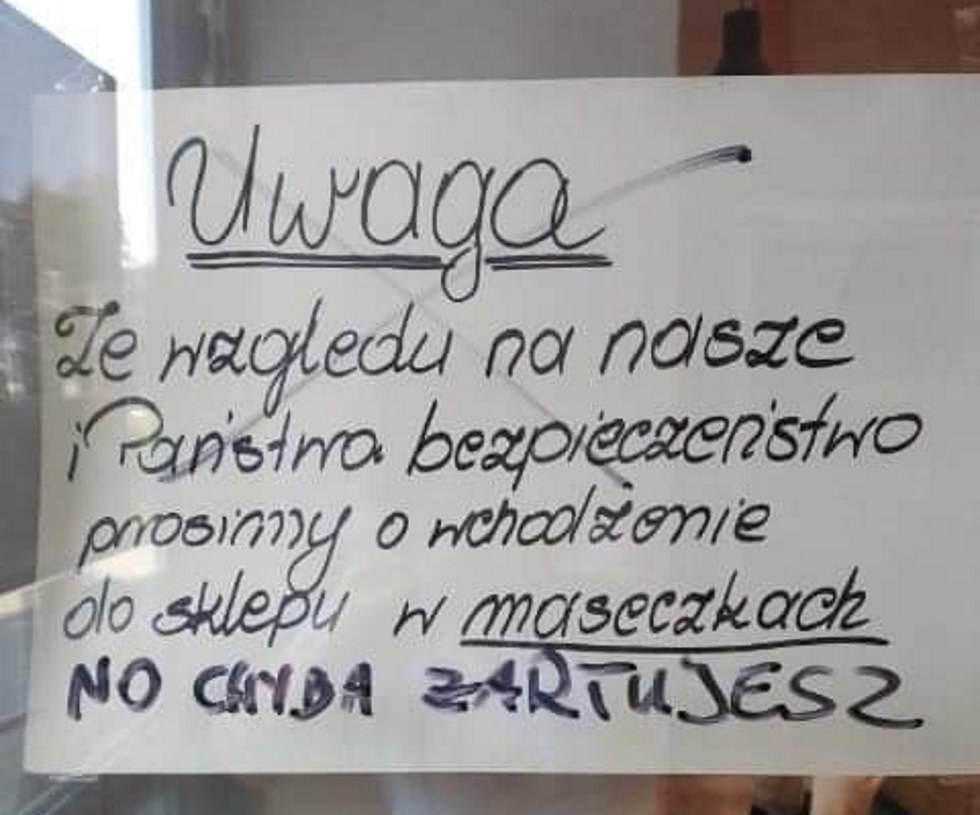 Uwaga
Ze względu na nasze
i Państwa bezpieczeństwo
prosimy o wchodzenie
do sklepu w maseczkach
NO CHYBA ŻARTUJESZ